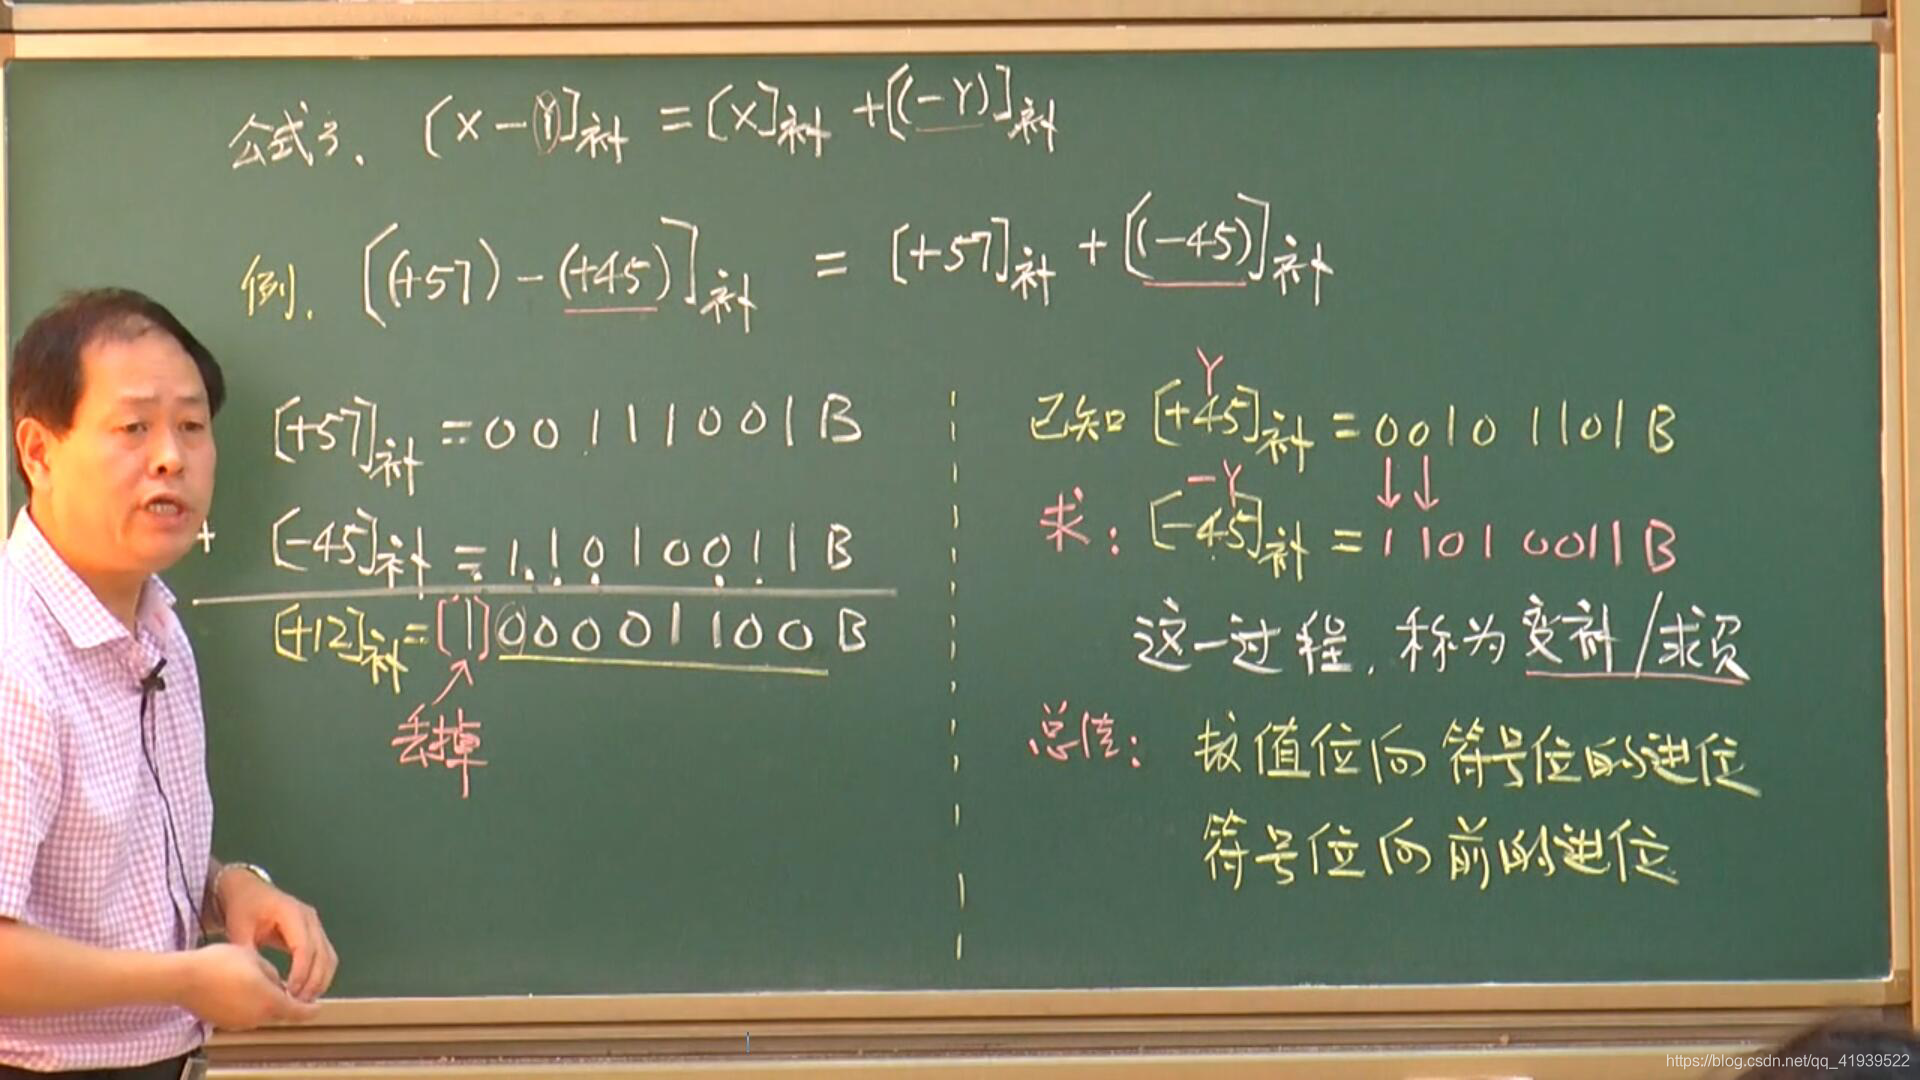 公式3、[X-Y]补=[X]补+[(-Y)]补
例. [(+57)-(+45)]补 = [+57]补+[(-45)]补
[+57]补=00111001B
+ [-45]补=11010011B
[+12]补=[1]00001100B
丢掉
Y
已知 [+45]补=00101101B
-Y
求: [-45]补=11010011B
这一过程, 称为变补/求负
总结: 数值位向符号位的进位
符号位向前的进位
https://blog.csdn.net/qq_41939522